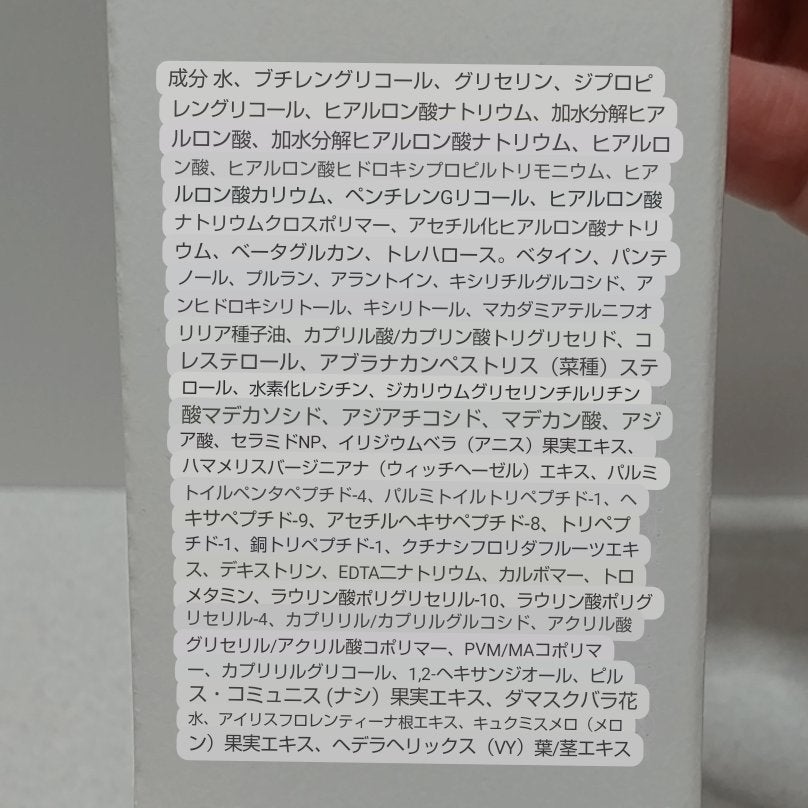 成分 水、ブチレングリコール、グリセリン、ジプロピ
レングリコール、ヒアルロン酸ナトリウム、加水分解ヒア
ルロン酸、加水分解ヒアルロン酸ナトリウム、ヒアルロ
ン酸、ヒアルロン酸ヒドロキシプロピルトリモニウム、ヒア
ルロン酸カリウム、ペンチレンGリコール、ヒアルロン酸
ナトリウムクロスポリマー、アセチル化ヒアルロン酸ナトリ
ウム、ベータグルカン、トレハロース。ベタイン、パンテ
ノール、プルラン、アラントイン、キシリチルグルコシド、ア
ンヒドロキシリトール、キシリトール、マカダミアテルニフオ
リリア種子油、カプリル酸/カプリン酸トリグリセリド、コ
レステロール、アブラナカンペストリス（菜種）ステ
ロール、水素化レシチン、ジカリウムグリセリンチルリチン
酸マデカソシド、アジアチコシド、マデカン酸、アジ
ア酸、セラミドNP、イリジウムベラ（アニス）果実エキス、
ハマメリスバージニアナ（ウィッチヘーゼル）エキス、パルミ
トイルペンタペプチド-4、パルミトイルトリペプチド-1、ヘ
キサペプチド-9、アセチルヘキサペプチド-8、トリペプ
チド-1、銅トリペプチド-1、クチナシフロリダフルーツエキ
ス、デキストリン、EDTA二ナトリウム、カルボマー、トロ
メタミン、ラウリン酸ポリグリセリル-10、ラウリン酸ポリグ
リセリル-4、カプリリル/カプリルグルコシド、アクリル酸
グリセリル/アクリル酸コポリマー、PVM/MAコポリマ
ー、カプリリルグリコール、1,2-ヘキサンジオール、ピル
ス・コミュニス (ナシ）果実エキス、ダマスクバラ花
水、アイリスフロレンティーナ根エキス、キュクミスメロ（メロ
ン）果実エキス、ヘデラヘリックス（VY）葉/茎エキス